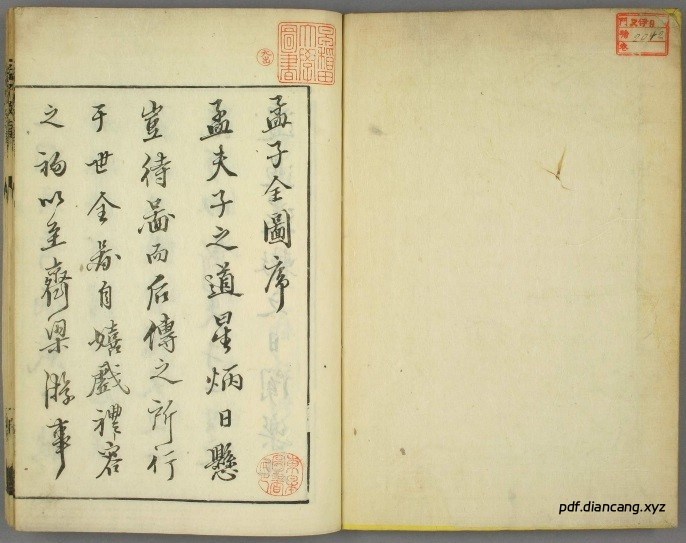 孟子全圖序
孟夫子之道星炳日懸
豈待啚而后傳之所行
于世全啚自嬉戲禮容
之初以至齊梁游事
早稻田大學圖書
pdf.diancang.xyz